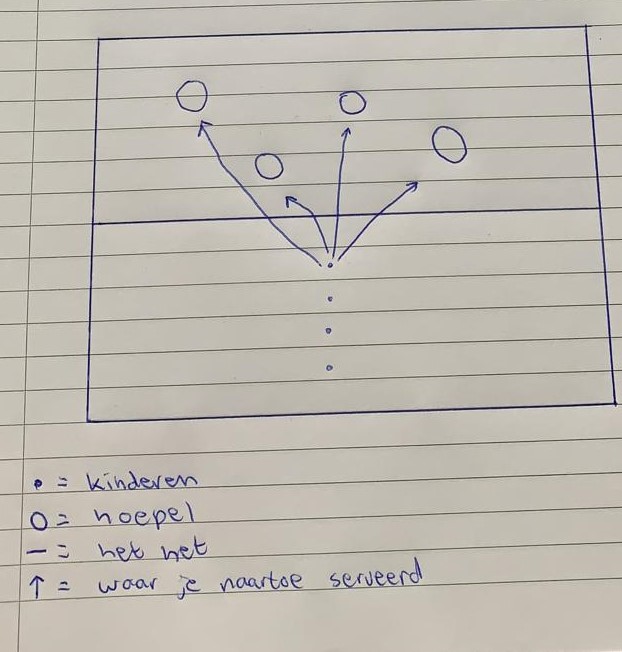 • = kinderen
O = hoepel
— = het net
↑ = waar je naartoe serveerd